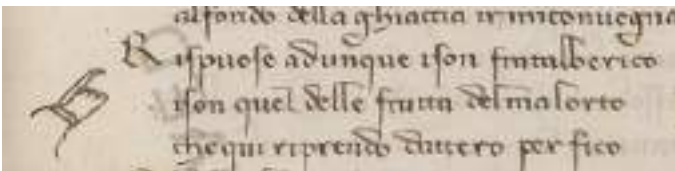 al fondo della ghiaccia ir mi conuegna
Rispuose adunque ison frate alberico
ison quel delle frutta del mal orto
che qui riprendo dattero per fico